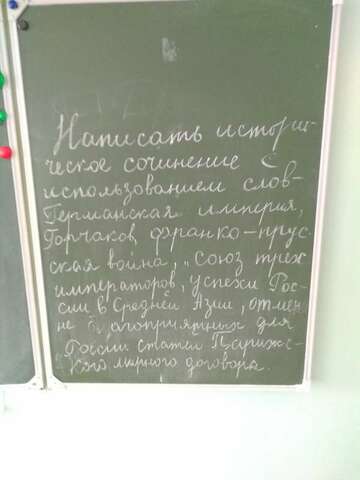 Написать истори-
ческое сочинение с
использованием слов-
Германская империя,
Горчаков, франко-прус
ская война, „Союз трех
императоров, успехи Рос-
сии в Средней Азии, отмена
не благоприятных для
России статей Парижс-
кого мирного договора.